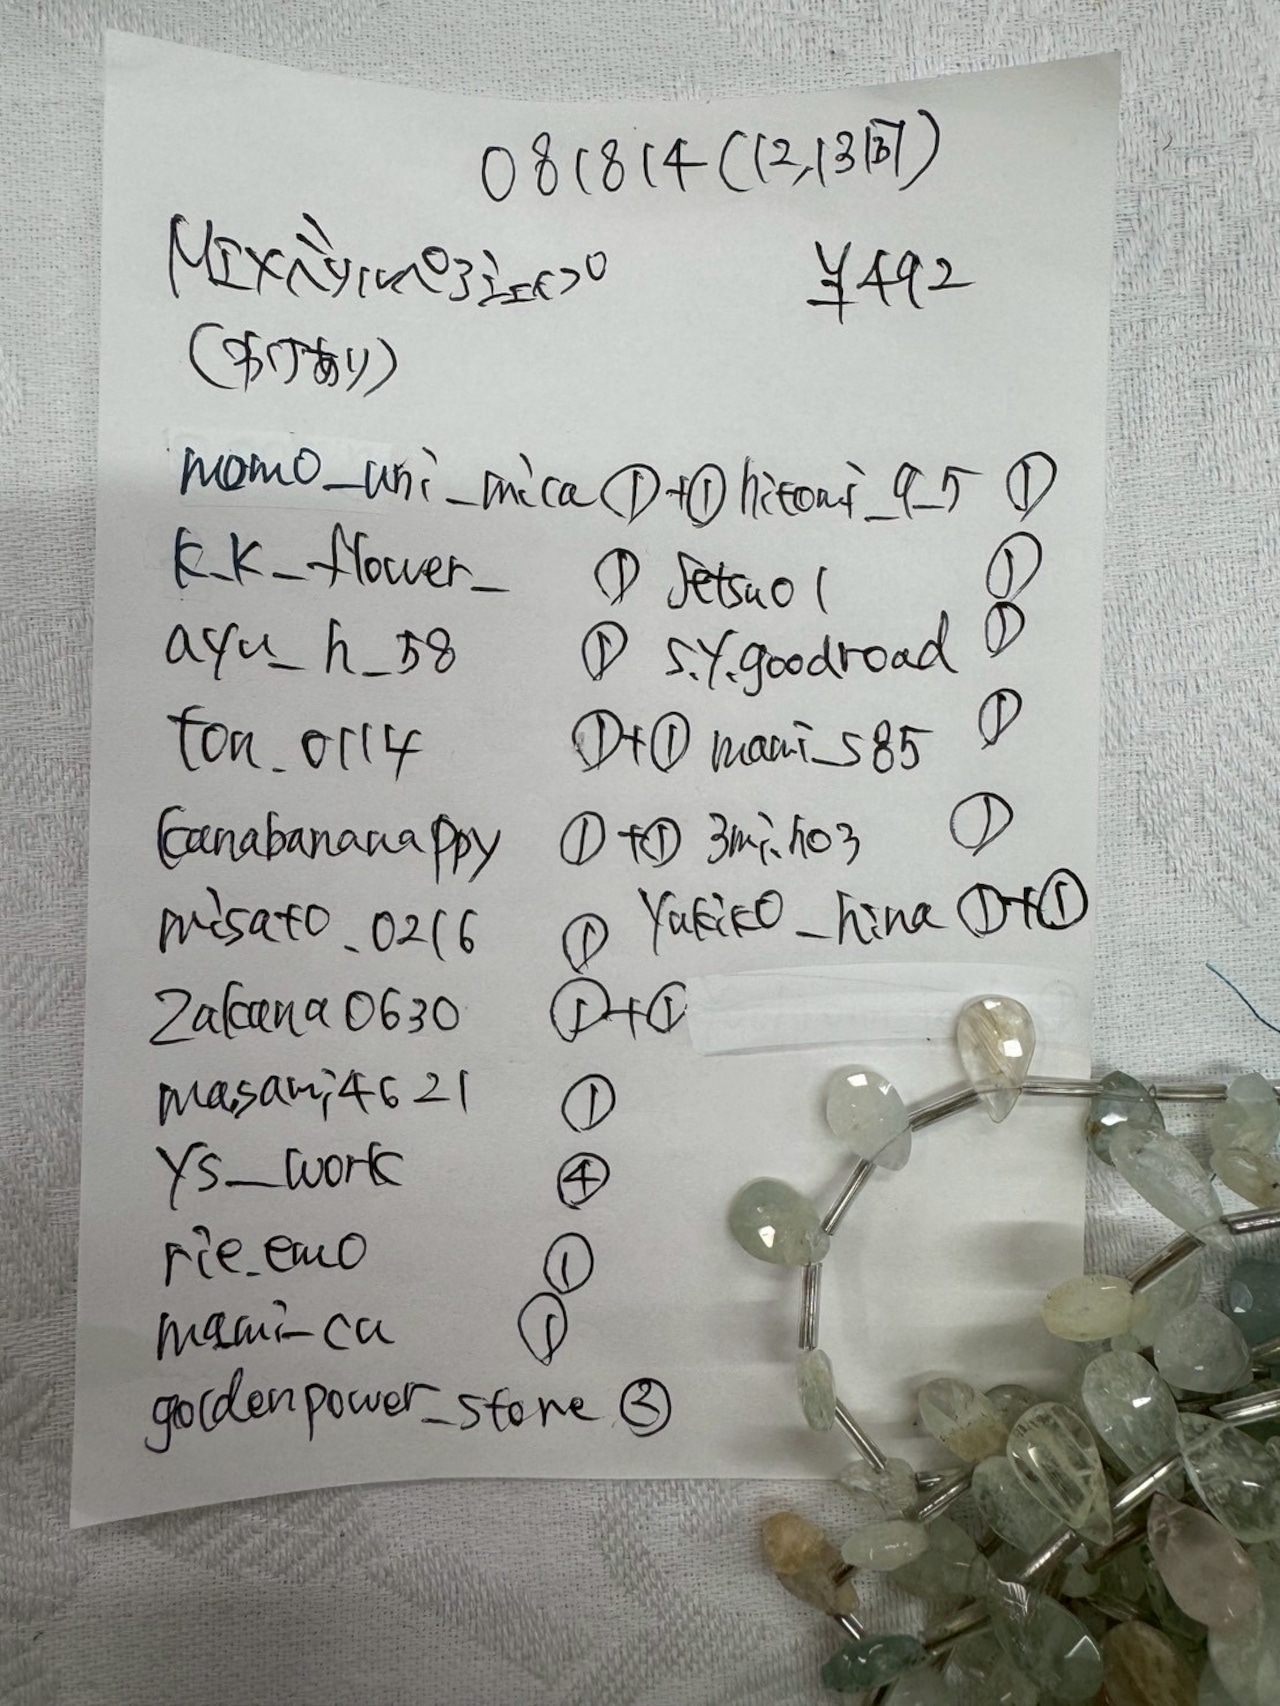 081814(12,13同)
MIXベリルペアドロップ ¥492
(わけあり)
momo_uni_mica ①+① hitomi_9_5 ①
k_k_flower_ ① setsu01 ①
ayu_h_58 ① s.y.goodroad ①
ton_0114 ①+① mami_s85 ①
kanabananappy ①+① 3miho3 ①
misato_0216 ① yukiko_hina ①+①
zakana0630 ①+①
masami4621 ①
ys_work ④
rie_emo ①
mami_cu ①
goldenpower_stone ③